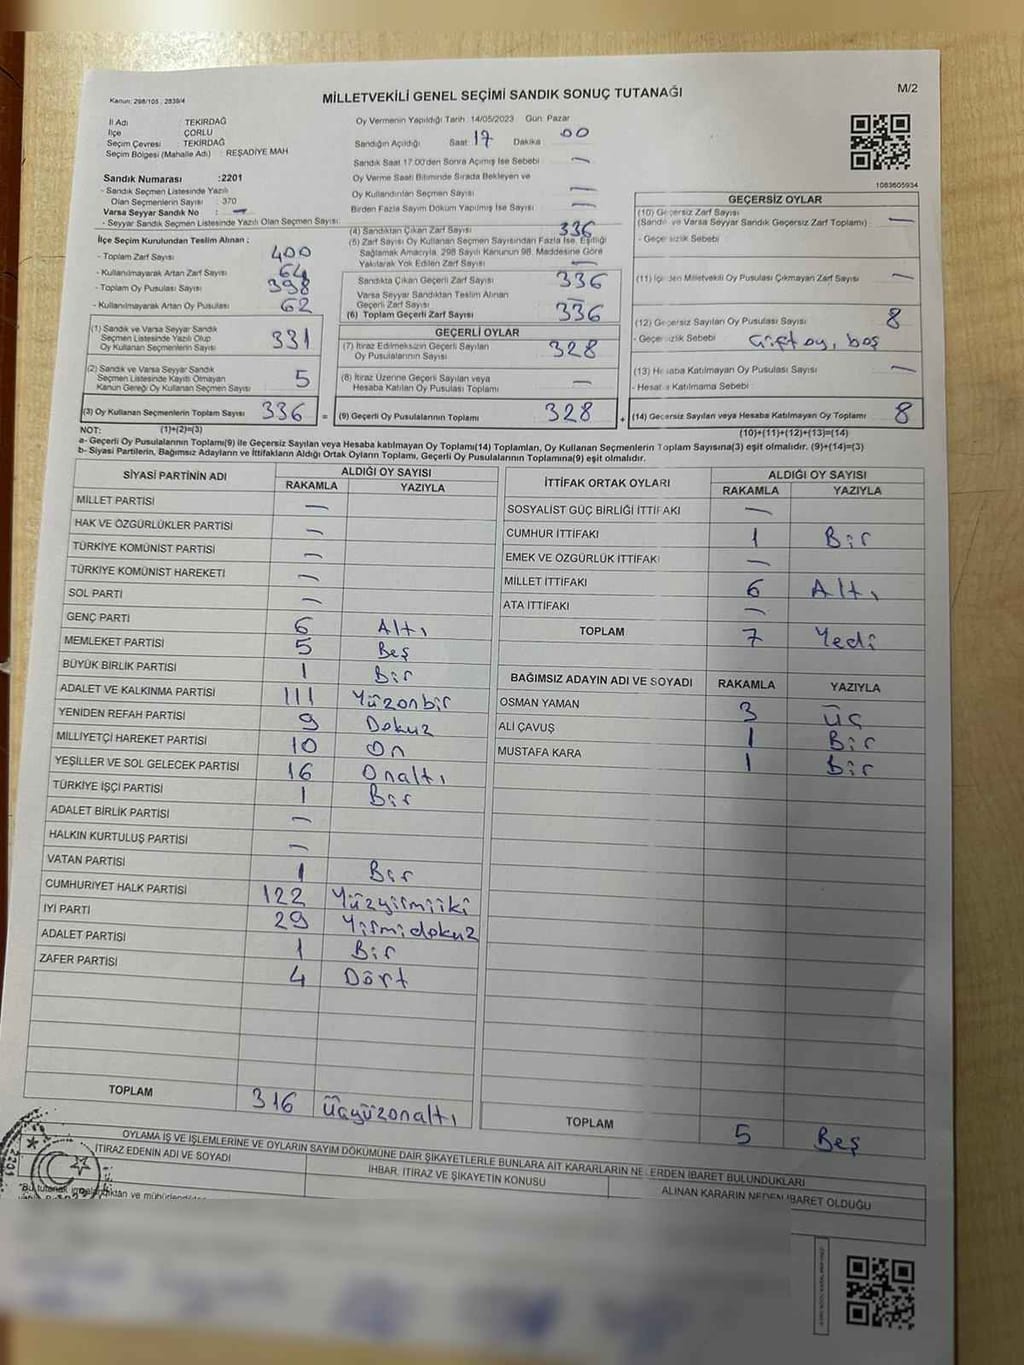 MİLLETVEKİLİ GENEL SEÇİMİ SANDIK SONUÇ TUTANAĞI
M/2
Kanun: 298/105 , 2839/4
İl Adı TEKİRDAĞ
İlçe ÇORLU
Seçim Çevresi TEKİRDAĞ
Seçim Bölgesi (Mahalle Adı) : REŞADİYE MAH
Sandık Numarası :2201
- Sandık Seçmen Listesinde Yazılı
Olan Seçmenlerin Sayısı : 370
Varsa Seyyar Sandık No : —
- Seyyar Sandık Seçmen Listesinde Yazılı Olan Seçmen Sayısı:
İlçe Seçim Kurulundan Teslim Alınan :
- Toplam Zarf Sayısı 400
- Kullanılmayarak Artan Zarf Sayısı 64
- Toplam Oy Pusulası Sayısı 398
- Kullanılmayarak Artan Oy Pusulası 62
(1) Sandık ve Varsa Seyyar Sandık
Seçmen Listesinde Yazılı Olup
Oy Kullanan Seçmenlerin Sayısı 331
(2) Sandık ve Varsa Seyyar Sandık
Seçmen Listesinde Kayıtlı Olmayan
Kanun Gereği Oy Kullanan Seçmen Sayısı 5
(3) Oy Kullanan Seçmenlerin Toplam Sayısı 336 =
(1)+(2)=(3)
Oy Vermenin Yapıldığı Tarih 14/05/2023 Gün: Pazar
Sandığın Açıldığı Saat 17 Dakika 00
Sandık Saat 17.00'den Sonra Açılmış İse Sebebi —
Oy Verme Saati Bitiminde Sırada Bekleyen ve
Oy Kullandırılan Seçmen Sayısı —
Birden Fazla Sayım Döküm Yapılmış İse Sayısı —
(4) Sandıktan Çıkan Zarf Sayısı 336
(5) Zarf Sayısı Oy Kullanan Seçmen Sayısından Fazla İse, Eşitliği
Sağlamak Amacıyla, 298 Sayılı Kanunun 98. Maddesine Göre
Yakılarak Yok Edilen Zarf Sayısı —
Sandıkta Çıkan Geçerli Zarf Sayısı 336
Varsa Seyyar Sandıktan Teslim Alınan
Geçerli Zarf Sayısı —
(6) Toplam Geçerli Zarf Sayısı 336
GEÇERLİ OYLAR
(7) İtiraz Edilmeksizin Geçerli Sayılan
Oy Pusulalarının Sayısı 328
(8) İtiraz Üzerine Geçerli Sayılan veya
Hesaba Katılan Oy Pusulası Toplamı —
(9) Geçerli Oy Pusulalarının Toplamı 328 +
1083605934
GEÇERSİZ OYLAR
(10) Geçersiz Zarf Sayısı
(Sandık ve Varsa Seyyar Sandık Geçersiz Zarf Toplamı) —
- Geçersizlik Sebebi
(11) İçinden Milletvekili Oy Pusulası Çıkmayan Zarf Sayısı —
(12) Geçersiz Sayılan Oy Pusulası Sayısı 8
- Geçersizlik Sebebi Çift oy, boş
(13) Hesaba Katılmayan Oy Pusulası Sayısı —
- Hesaba Katılmama Sebebi
(14) Geçersiz Sayılan veya Hesaba Katılmayan Oy Toplamı 8
(10)+(11)+(12)+(13)=(14)
NOT:
a- Geçerli Oy Pusulalarının Toplamı(9) ile Geçersiz Sayılan veya Hesaba katılmayan Oy Toplamı(14) Toplamları, Oy Kullanan Seçmenlerin Toplam Sayısına(3) eşit olmalıdır. (9)+(14)=(3)
b- Siyasi Partilerin, Bağımsız Adayların ve İttifakların Aldığı Ortak Oyların Toplamı, Geçerli Oy Pusulalarının Toplamına(9) eşit olmalıdır.
SİYASİ PARTİNİN ADI ALDIĞI OY SAYISI
RAKAMLA YAZIYLA
MİLLET PARTİSİ —
HAK VE ÖZGÜRLÜKLER PARTİSİ —
TÜRKİYE KOMÜNİST PARTİSİ —
TÜRKİYE KOMÜNİST HAREKETİ —
SOL PARTİ —
GENÇ PARTİ 6 Altı
MEMLEKET PARTİSİ 5 Beş
BÜYÜK BİRLİK PARTİSİ 1 Bir
ADALET VE KALKINMA PARTİSİ 111 Yüzonbir
YENİDEN REFAH PARTİSİ 9 Dokuz
MİLLİYETÇİ HAREKET PARTİSİ 10 On
YEŞİLLER VE SOL GELECEK PARTİSİ 16 Onaltı
TÜRKİYE İŞÇİ PARTİSİ 1 Bir
ADALET BİRLİK PARTİSİ —
HALKIN KURTULUŞ PARTİSİ —
VATAN PARTİSİ 1 Bir
CUMHURİYET HALK PARTİSİ 122 Yüzyirmiiki
İYİ PARTİ 29 Yirmidokuz
ADALET PARTİSİ 1 Bir
ZAFER PARTİSİ 4 Dört
TOPLAM 316 üçyüzonaltı
İTTİFAK ORTAK OYLARI ALDIĞI OY SAYISI
RAKAMLA YAZIYLA
SOSYALİST GÜÇ BİRLİĞİ İTTİFAKI —
CUMHUR İTTİFAKI 1 Bir
EMEK VE ÖZGÜRLÜK İTTİFAKI —
MİLLET İTTİFAKI 6 Altı
ATA İTTİFAKI —
TOPLAM 7 Yedi
BAĞIMSIZ ADAYIN ADI VE SOYADI RAKAMLA YAZIYLA
OSMAN YAMAN 3 üç
ALİ ÇAVUŞ 1 Bir
MUSTAFA KARA 1 Bir
TOPLAM 5 Beş
OYLAMA İŞ VE İŞLEMLERİNE VE OYLARIN SAYIM DÖKÜMÜNE DAİR ŞİKAYETLERLE BUNLARA AİT KARARLARIN NELERDEN İBARET BULUNDUKLARI
İTİRAZ EDENİN ADI VE SOYADI İHBAR, İTİRAZ VE ŞİKAYETİN KONUSU ALINAN KARARIN NEDEN İBARET OLDUĞU
2201